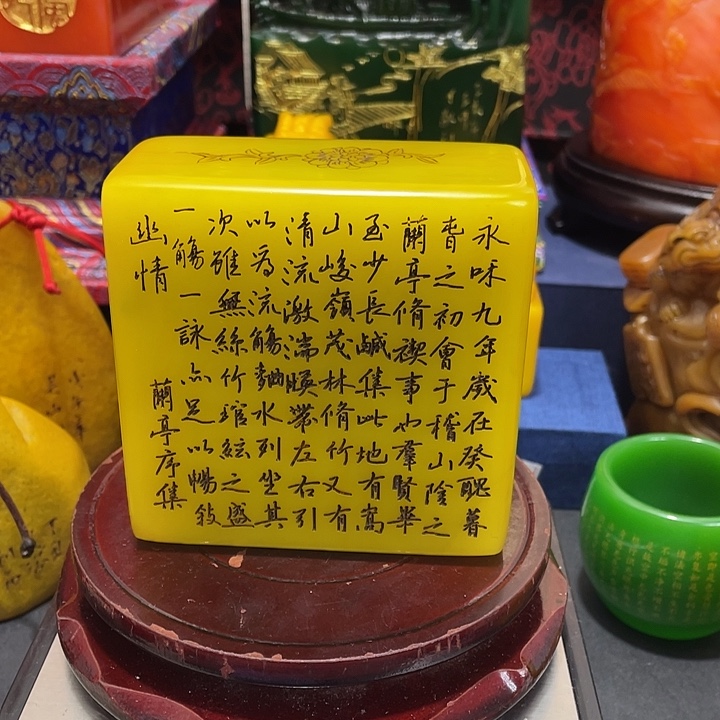 永咊九年歲在癸醜暮
春之初會于稽山陰之
蘭亭脩禊事也羣賢畢
至少長鹹集此地有嵩
山峻嶺茂林脩竹又有
清流激湍暎帶左右引
以為流觴麯水列坐其
次雖無絲竹琯絃之盛
一觴一詠亦足以暢敘
幽情
蘭亭序集